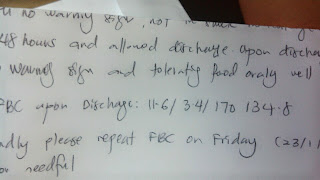 no warning sign, not in shock
48 hours and allowed discharge upon dischar
warning sign and tolerating food orally well
FBC upon Discharge: 11.6/34/170 134.8
ndly please repeat FBC on Friday (23/1
needful